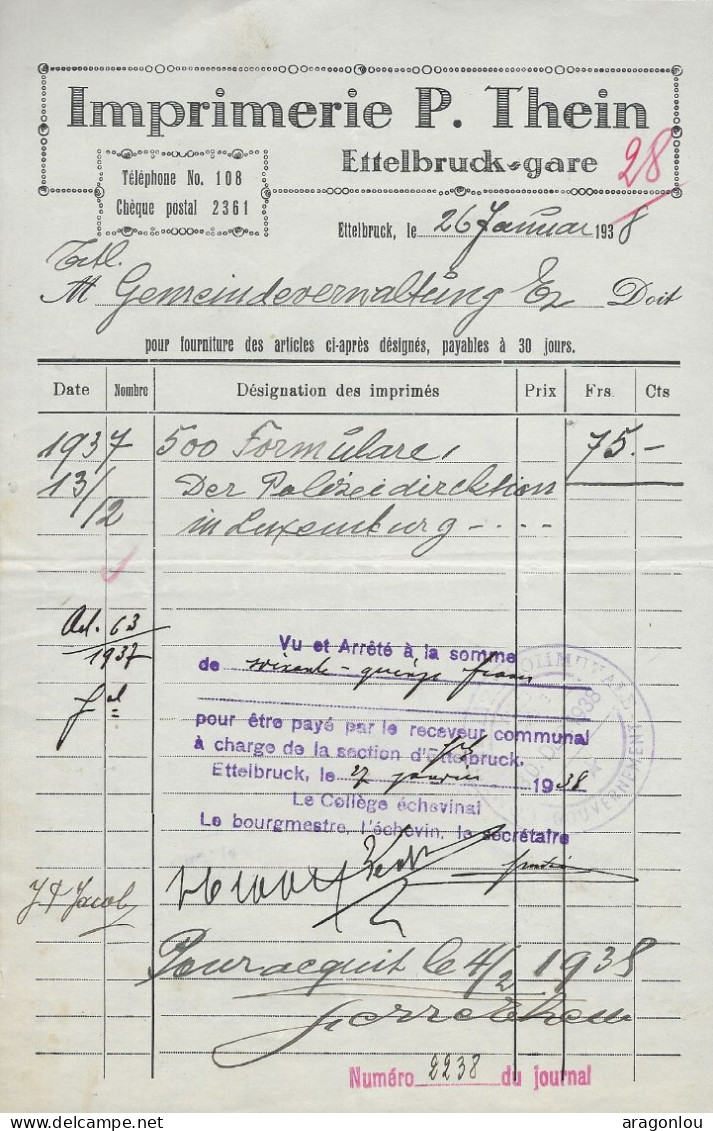 Imprimerie P. Thein
Ettelbruck-gare
28
Téléphone No. 108
Chèque postal 2361
Ettelbruck, le 26 Januar 1938
Titl.
M Gemeindeverwaltung Ez Doit
pour fourniture des articles ci-après désignés, payables à 30 jours.
Date Nombre Désignation des imprimés Prix Frs. Cts
1937 500 Formulare, 75.-
13/12 Der Polizeidirektion
in Luxemburg - . . .
Art. 63
1937
Vu et Arrêté à la somme
de soixante-quinze francs
pour être payé par le receveur communal
à charge de la section d'Ettelbruck.
Ettelbruck, le 27 janvier 1938
Le Collège échevinal
Le bourgmestre, l'échevin, le secrétaire
GOUVERNEMENT
J P Jacoby
Pour acquit le 4/2 1938
Pierre Thein
Numéro 2238 du journal
aragonlou